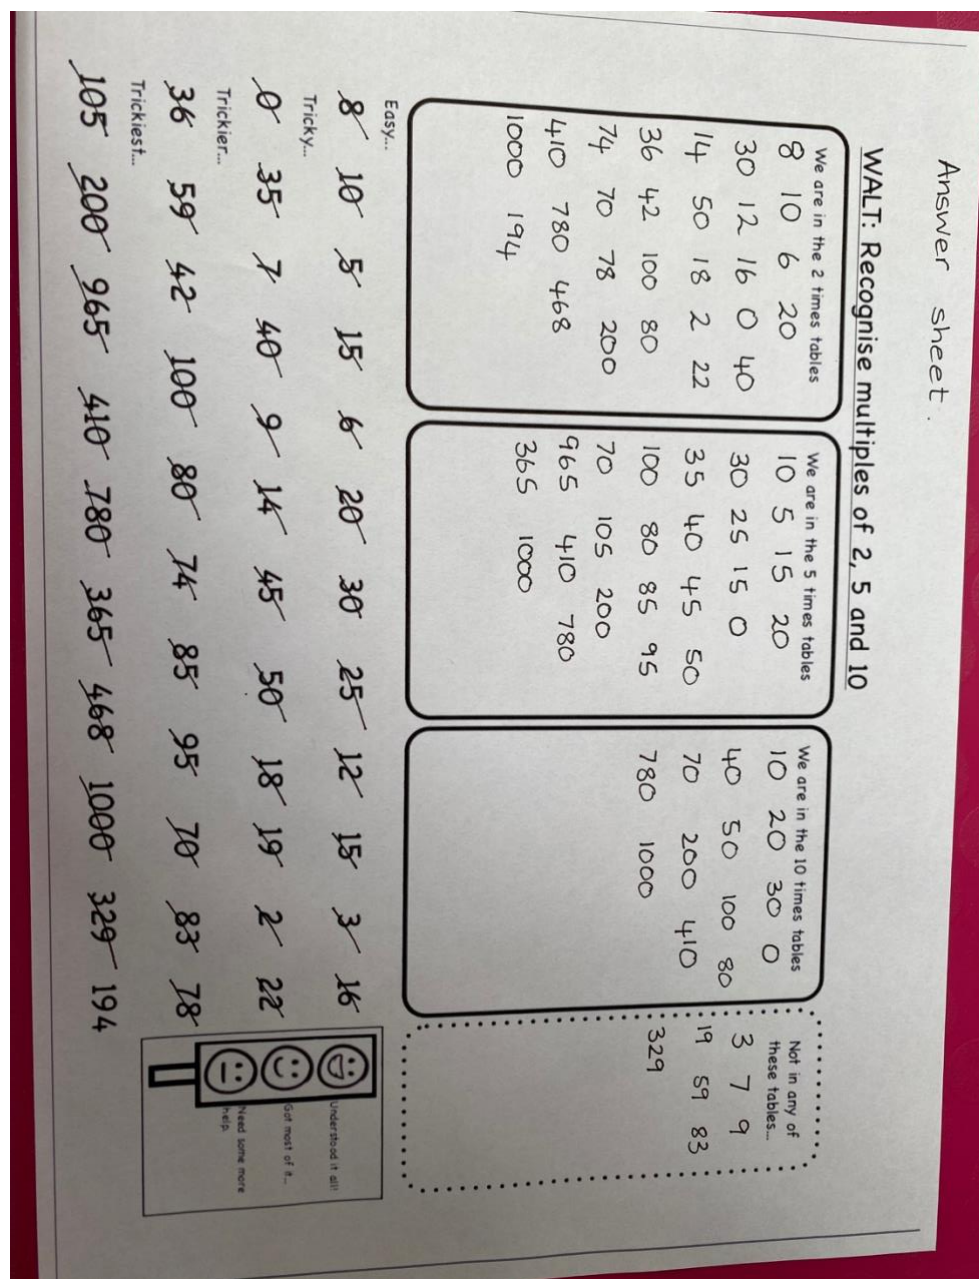 Answer sheet.
WALT: Recognise multiples of 2, 5 and 10
We are in the 2 times tables
8 10 6 20
30 12 16 0 40
14 50 18 2 22
36 42 100 80
74 70 78 200
410 780 468
1000 194
We are in the 5 times tables
10 5 15 20
30 25 15 0
35 40 45 50
100 80 85 95
70 105 200
965 410 780
365 1000
We are in the 10 times tables
10 20 30 0
40 50 100 80
70 200 410
780 1000
Not in any of
these tables...
3 7 9
19 59 83
329
Easy...
8 10 5 15 6 20 30 25 12 15 3 16
Tricky...
0 35 7 40 9 14 45 50 18 19 2 22
Trickier...
36 59 42 100 80 74 85 95 70 83 78
Trickiest...
105 200 965 410 780 365 468 1000 329 194
Understood it all!
Got most of it...
Need some more
help.